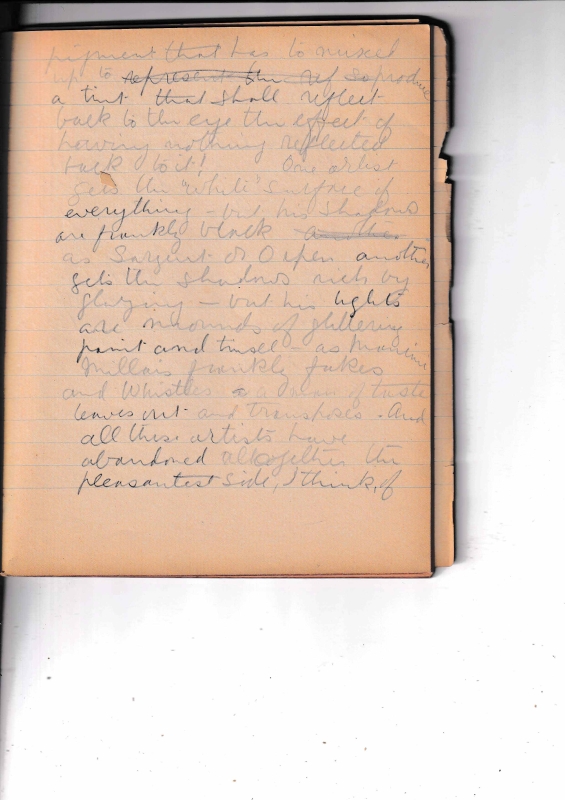 pigment that has to mixed
up to represent the ref so produce
a tint that shall reflect
back to the eye the effect of
having nothing reflected
back to it! One artist
gets the "white" surface of
everything - but his shadows
are frankly black another
as Sargent or Orpen another
gets the shadows rich by
glazing - but his lights
are mounds of glittering
paint and tinsel - as Mancini
Millais frankly fakes
and Whistler a man of taste
leaves out and transposes. And
all these artists have
abandoned altogether the
pleasantest side, I think, of